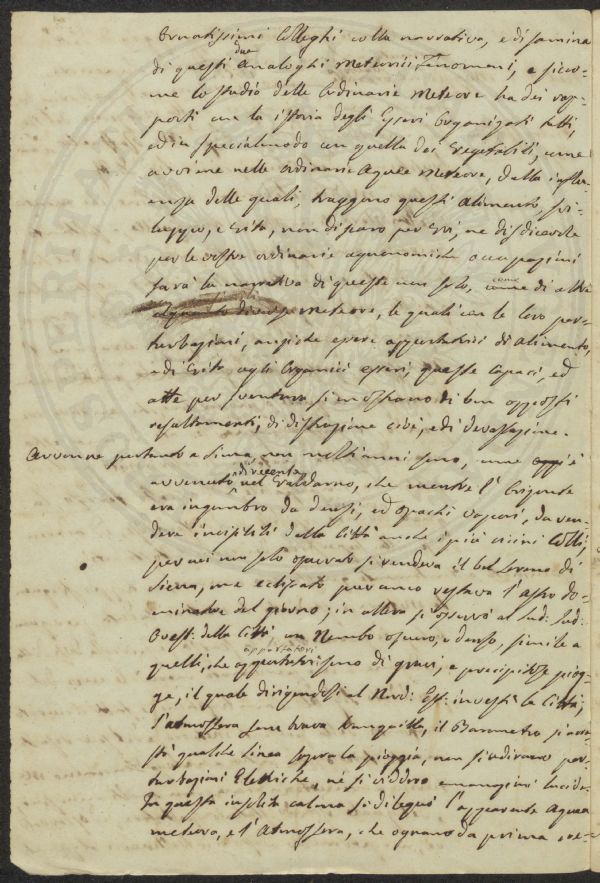 Ornatissimi Colleghi colla narrativa, e disamina
di questi due Analoghi Meteorici Fenomeni, e sicco-
me lo studio delle Ordinarie Meteore ha dei rap-
porti con la istoria degli Esseri Organizati tutti,
ed in specialmodo con quella dei Vegetabili, come
avviene nelle ordinarie Aquee Meteore, dalla influ-
enza delle quali, traggono questi Alimento, svi-
luppo, e Vita, non discaro per voi, ne disdicevole
per le vostre ordinarie agronomiche occupazioni
sarà la narrativa di queste non solo, come di altre
Meteore, le quali con le loro per-
turbazioni, anziche essere apportatrici di alimento,
e di Vita agli Organici esseri, queste Capaci, ed
atte per ventura si mostrano di ben opposti
resultamenti, di distruzione cioè, e di devastazione.
Avvenne pertanto a Siena, non molti mesi sono, come
avvenuto di recente nel Valdarno, che mentre l'Orizonte
era ingombro da densi, ed opachi vapori, da ren-
dere invisibili dalla Città anche i più vicini Colli,
per cui non solo oscurato si rendeva il bel sereno di
Siena, ma eclissato per anco restava l'astro do-
minatore del giorno; in allora si osservò al Sud: Sud:
Ovest: della Città un Nembo oscuro, e denso, simile a
quelli, che apportatori sono di gravi, e precipitose piog-
ge, il quale dirigendosi al Nord: Est: investì la Città,
l'atmosfera sembrava tranquilla, il Barometro si
stò qualche linea sopra la pioggia, non si udirono per-
turbazioni Elettriche, nè si viddero emanazioni lucide.
In questa insolita calma si dileguò l'apparente Aquea
meteora, e l'Atmosfera, che ognuno da prima cre-